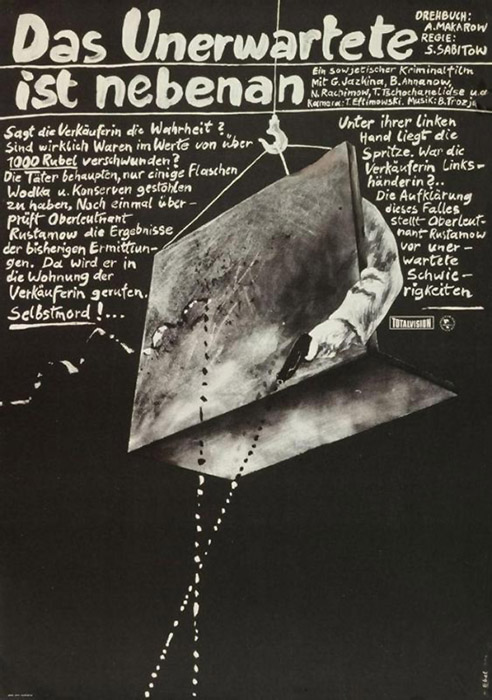 Das Unerwartete
ist nebenan
DREHBUCH:
A. MAKAROW
REGIE:
S. SABITOW
Ein sowjetischer Kriminalfilm
mit G. Jazkina, B. Annanow,
N. Rachimow, T. Tschochanelidse u.a
Kamera: T. Eftimowski. Musik: B. Trozja
Sagt die Verkäuferin die Wahrheit?
Sind wirklich Waren im Werte von über
1000 Rubel verschwunden?
Die Täter behaupten, nur einige Flaschen
Wodka u. Konserven gestohlen
zu haben. Noch einmal über-
prüft Oberleutnant
Rustamow die Ergebnisse
der bisherigen Ermittlun-
gen. Da wird er in
die Wohnung der
Verkäuferin gerufen.
Selbstmord!...
Unter ihrer linken
Hand liegt die
Spritze. War die
Verkäuferin Links-
händerin?..
Die Aufklärung
dieses Falles
stellt Oberleut-
nant Rustamow
vor uner-
wartete
Schwie-
rigkeiten
TOTALVISION